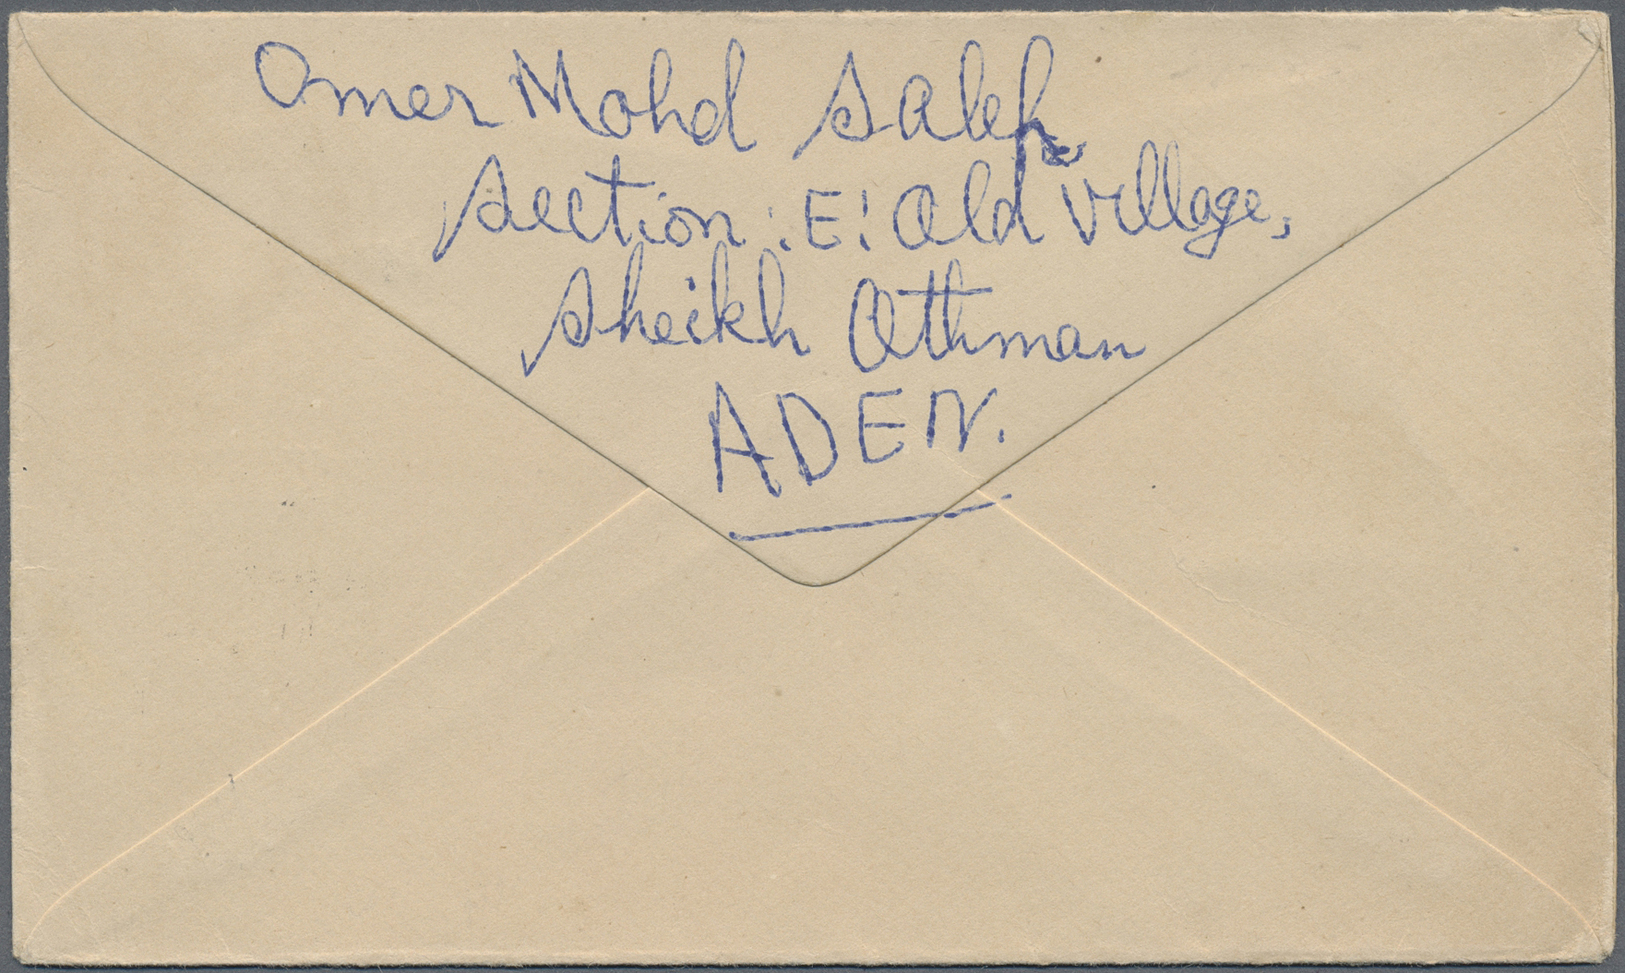 Omer Mohd Saleh
Section 'E' Old Village,
Sheikh Othman
ADEN.